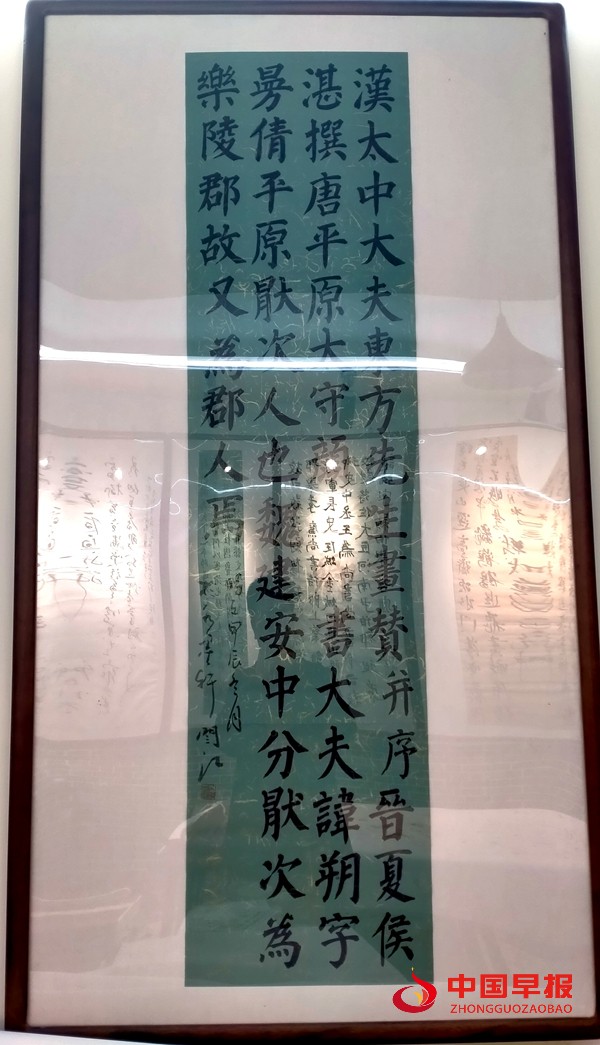 漢太中大夫東方先生畫賛并序晉夏侯
湛撰唐平原太守書大夫諱朔字
曼倩平原猒次人也魏建安中分猒次為
樂陵郡故又為郡人焉
甲辰冬月
軒
中国早报
ZHONGGUOZAOBAO